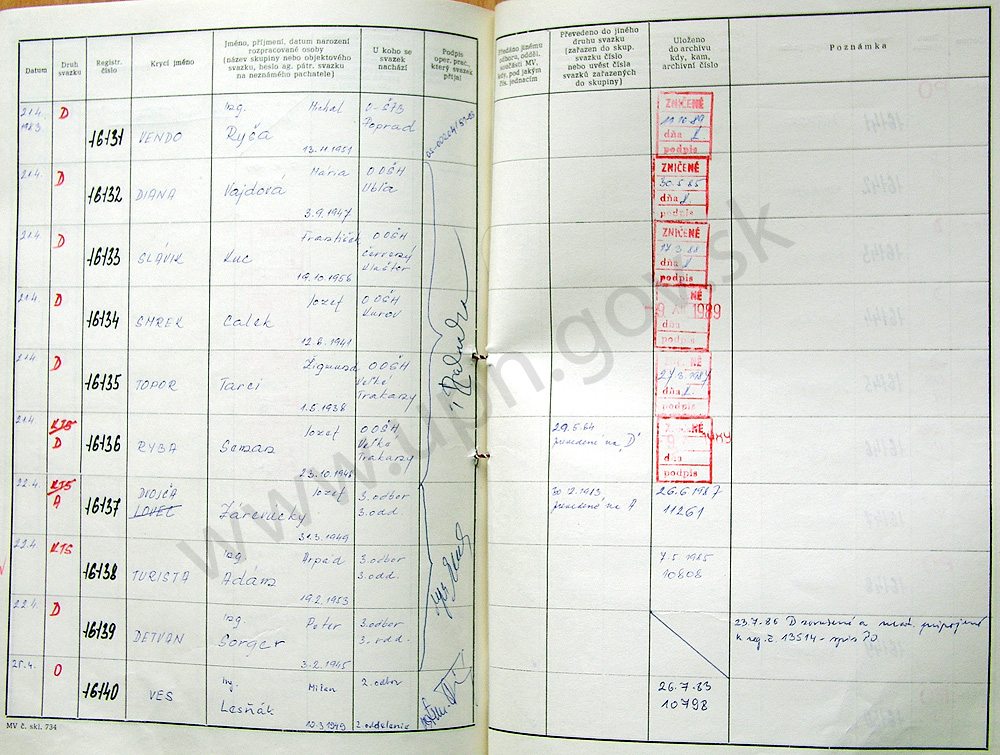 Datum
Druh svazku
Registr. číslo
Krycí jméno
Jméno, příjmení, datum narození
rozpracované osoby
(název skupiny nebo objektového
svazku, heslo ag. pátr. svazku
na neznámého pachatele)
U koho se
svazek
nachází
Podpis
oper. prac.,
který svazek
přijal
Předáno jinému
odboru, odděl.
součásti MV,
kdy, pod jakým
čís. jednacím
Převedeno do jiného
druhu svazku
(zařazen do skup.
svazku číslo
nebo uvést čísla
svazků zařazených
do skupiny)
Uloženo
do archivu
kdy, kam,
archivní číslo
Poznámka
21.4. 1983 D 16131 VENDO Ing. Michal Ryča 13.11.1951 O-ŠTB Poprad
ZNIČENÉ
dňa
podpis
21.4. D 16132 DIANA Mária Vajdová 3.9.1947 OOŠH Ubľa
ZNIČENÉ
30.5.85
dňa
podpis
21.4. D 16133 SLÁVIK František Kuc 19.10.1956 OOŠH Červený Kláštor
ZNIČENÉ
dňa
podpis
21.4. D 16134 SMREK Jozef Calek 12.6.1941 OOŠH Kurov
NÉ
1989
dňa
podpis
21.4. D 16135 TOPOR Žigmund Tarci 1.5.1938 OOŠH Veľké Trakany
NÉ
dňa
podpis
21.4. KTS D 16136 RYBA Jozef Seman 23.10.1948 OOŠH Veľké Trakany
prevedené na "D"
dňa
podpis
22.4. KTS A 16137 DVOJČA Jozef 31.3.1949 3. odbor 3. odd.
prevedené na A
26.6.1987
11261
22.4. KTS 16138 TURISTA Ing. Arpad Adám 19.2.1953 3. odbor 3. odd.
7.5.1985
10808
22.4. D 16139 DETVAN Ing. Peter Sorger 3.2.1945 3. odbor 3. odd.
23.7.86 D zrušené a mat. pripojené
k reg. č. 13514 - spis PO
25.4. O 16140 VES Ing. Milan Lesňák 10.3.1949 2. odbor 2. oddelenie
26.7.83
10798
MV č. skl. 734
www.upn.gov.sk